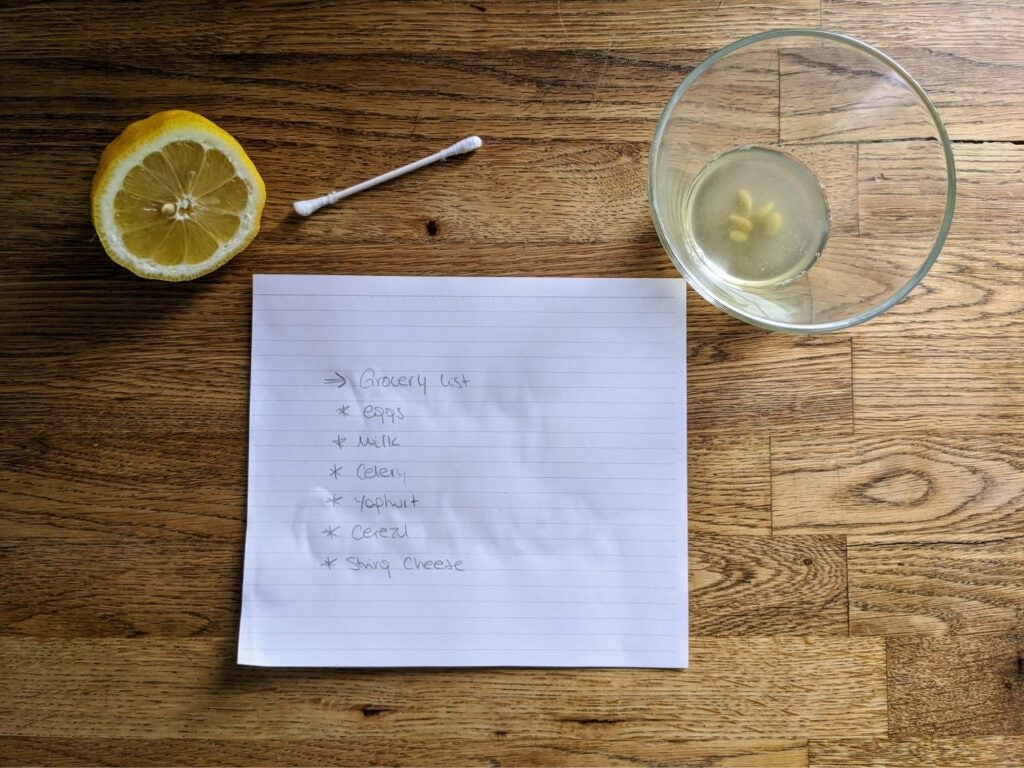 ⇒ Grocery list
* eggs
* Milk
* Celery
* Yoghurt
* Cereal
* String Cheese